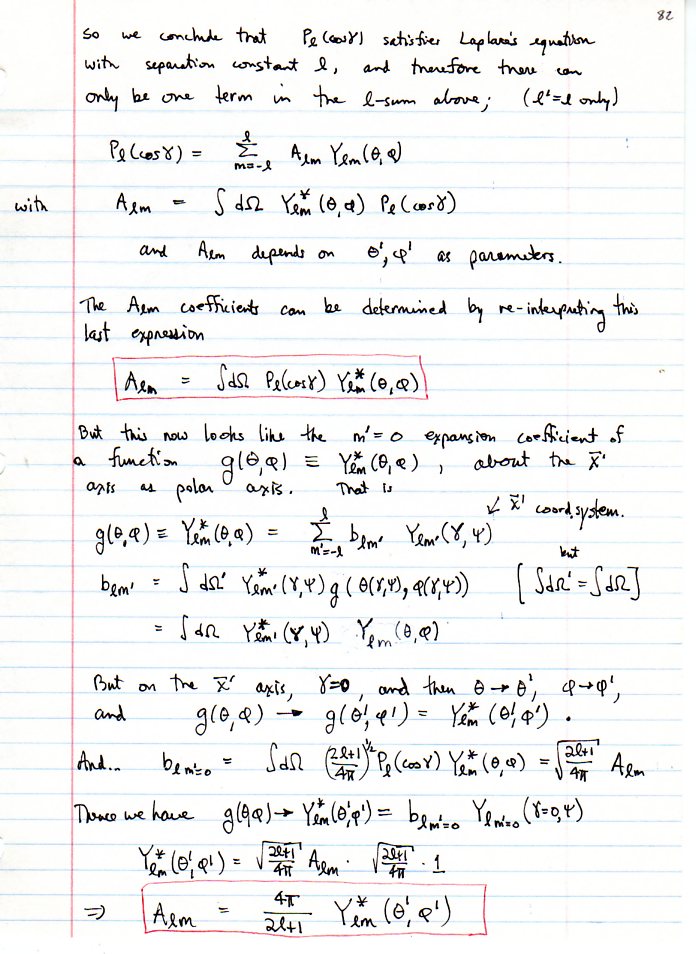 82
So we conclude that Pℓ(cosγ) satisfies Laplace's equation
with separation constant ℓ, and therefore there can
only be one term in the ℓ-sum above; (ℓ'=ℓ only)
Pℓ(cosγ) = Σ_{m=-ℓ}^{ℓ} Aℓm Yℓm(θ,φ)
with Aℓm = ∫dΩ Yℓm*(θ,φ) Pℓ(cosγ)
and Aℓm depends on θ',φ' as parameters.
The Aℓm coefficients can be determined by re-interpreting this
last expression
Aℓm = ∫dΩ Pℓ(cosγ) Yℓm*(θ,φ)
But this now looks like the m'=0 expansion coefficient of
a function g(θ,φ) ≡ Yℓm*(θ,φ), about the x̄'
axis as polar axis. That is
↙ x̄' coord. system.
g(θ,φ) ≡ Yℓm*(θ,φ) = Σ_{m'=-ℓ}^{ℓ} bℓm' Yℓm'(γ,ψ)
but
bℓm' = ∫dΩ' Yℓm'*(γ,ψ) g(θ(γ,ψ), φ(γ,ψ)) [∫dΩ' = ∫dΩ]
= ∫dΩ Yℓm'*(γ,ψ) Yℓm(θ,φ)
But on the x̄' axis, γ=0, and then θ→θ', φ→φ',
and g(θ,φ) → g(θ',φ') = Yℓm*(θ',φ').
And... bℓm'=0 = ∫dΩ (2ℓ+1/4π)^½ Pℓ(cosγ) Yℓm*(θ,φ) = √(2ℓ+1/4π) Aℓm
Thence we have g(θ,φ) → Yℓm*(θ',φ') = bℓm'=0 Yℓm'=0(γ=0,ψ)
Yℓm*(θ',φ') = √(2ℓ+1/4π) Aℓm · √(2ℓ+1/4π) · 1
⇒ Aℓm = 4π/2ℓ+1 Yℓm*(θ',φ')